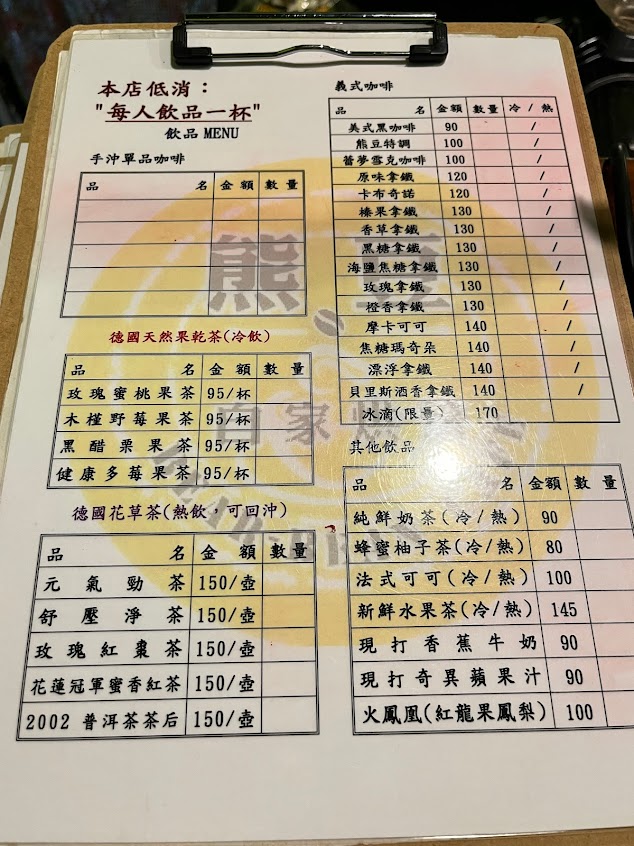 本店低消：
"每人飲品一杯"
飲品 MENU
手沖單品咖啡
品 名 金 額 數 量
德國天然果乾茶(冷飲)
品 名 金 額 數 量
玫瑰蜜桃果茶 95/杯
木槿野莓果茶 95/杯
黑醋栗果茶 95/杯
健康多莓果茶 95/杯
德國花草茶(熱飲，可回沖)
品 名 金 額 數 量
元氣勁茶 150/壺
舒壓淨茶 150/壺
玫瑰紅棗茶 150/壺
花蓮冠軍蜜香紅茶 150/壺
2002 普洱茶茶后 150/壺
義式咖啡
品 名 金額 數量 冷 / 熱
美式黑咖啡 90 /
熊豆特調 100 /
蕾夢雪克咖啡 100 /
原味拿鐵 120 /
卡布奇諾 120 /
榛果拿鐵 130 /
香草拿鐵 130 /
黑糖拿鐵 130 /
海鹽焦糖拿鐵 130 /
玫瑰拿鐵 130 /
橙香拿鐵 130 /
摩卡可可 140 /
焦糖瑪奇朵 140 /
漂浮拿鐵 140 /
貝里斯酒香拿鐵 140 /
冰滴(限量) 170
其他飲品
品 名 金額 數 量
純鮮奶茶(冷/熱) 90
蜂蜜柚子茶(冷/熱) 80
法式可可(冷/熱) 100
新鮮水果茶(冷/熱) 145
現打香蕉牛奶 90
現打奇異蘋果汁 90
火鳳凰(紅龍果鳳梨) 100
熊豆